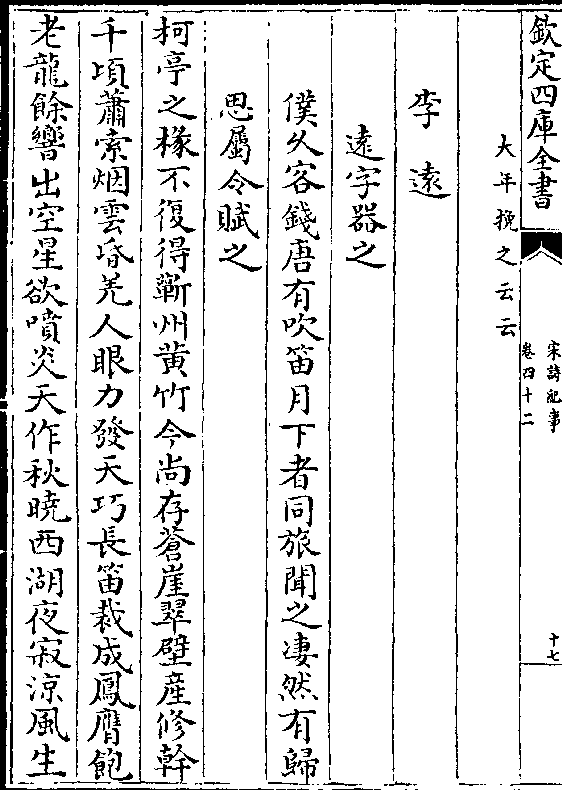 欽定四庫全書
宋詩紀事
卷四十二
十七
大年挽之云云
李遠
遠字器之
僕久客錢唐有吹笛月下者同旅聞之凄然有歸
思屬令賦之
柯亭之椽不復得蘄州黄竹今尚存蒼崖翠壁産修幹
千頃蕭索烟雲昏羌人眼力發天巧長笛裁成鳳膺飽
老龍餘響出空星欲噴炎天作秋曉西湖夜寂涼風生